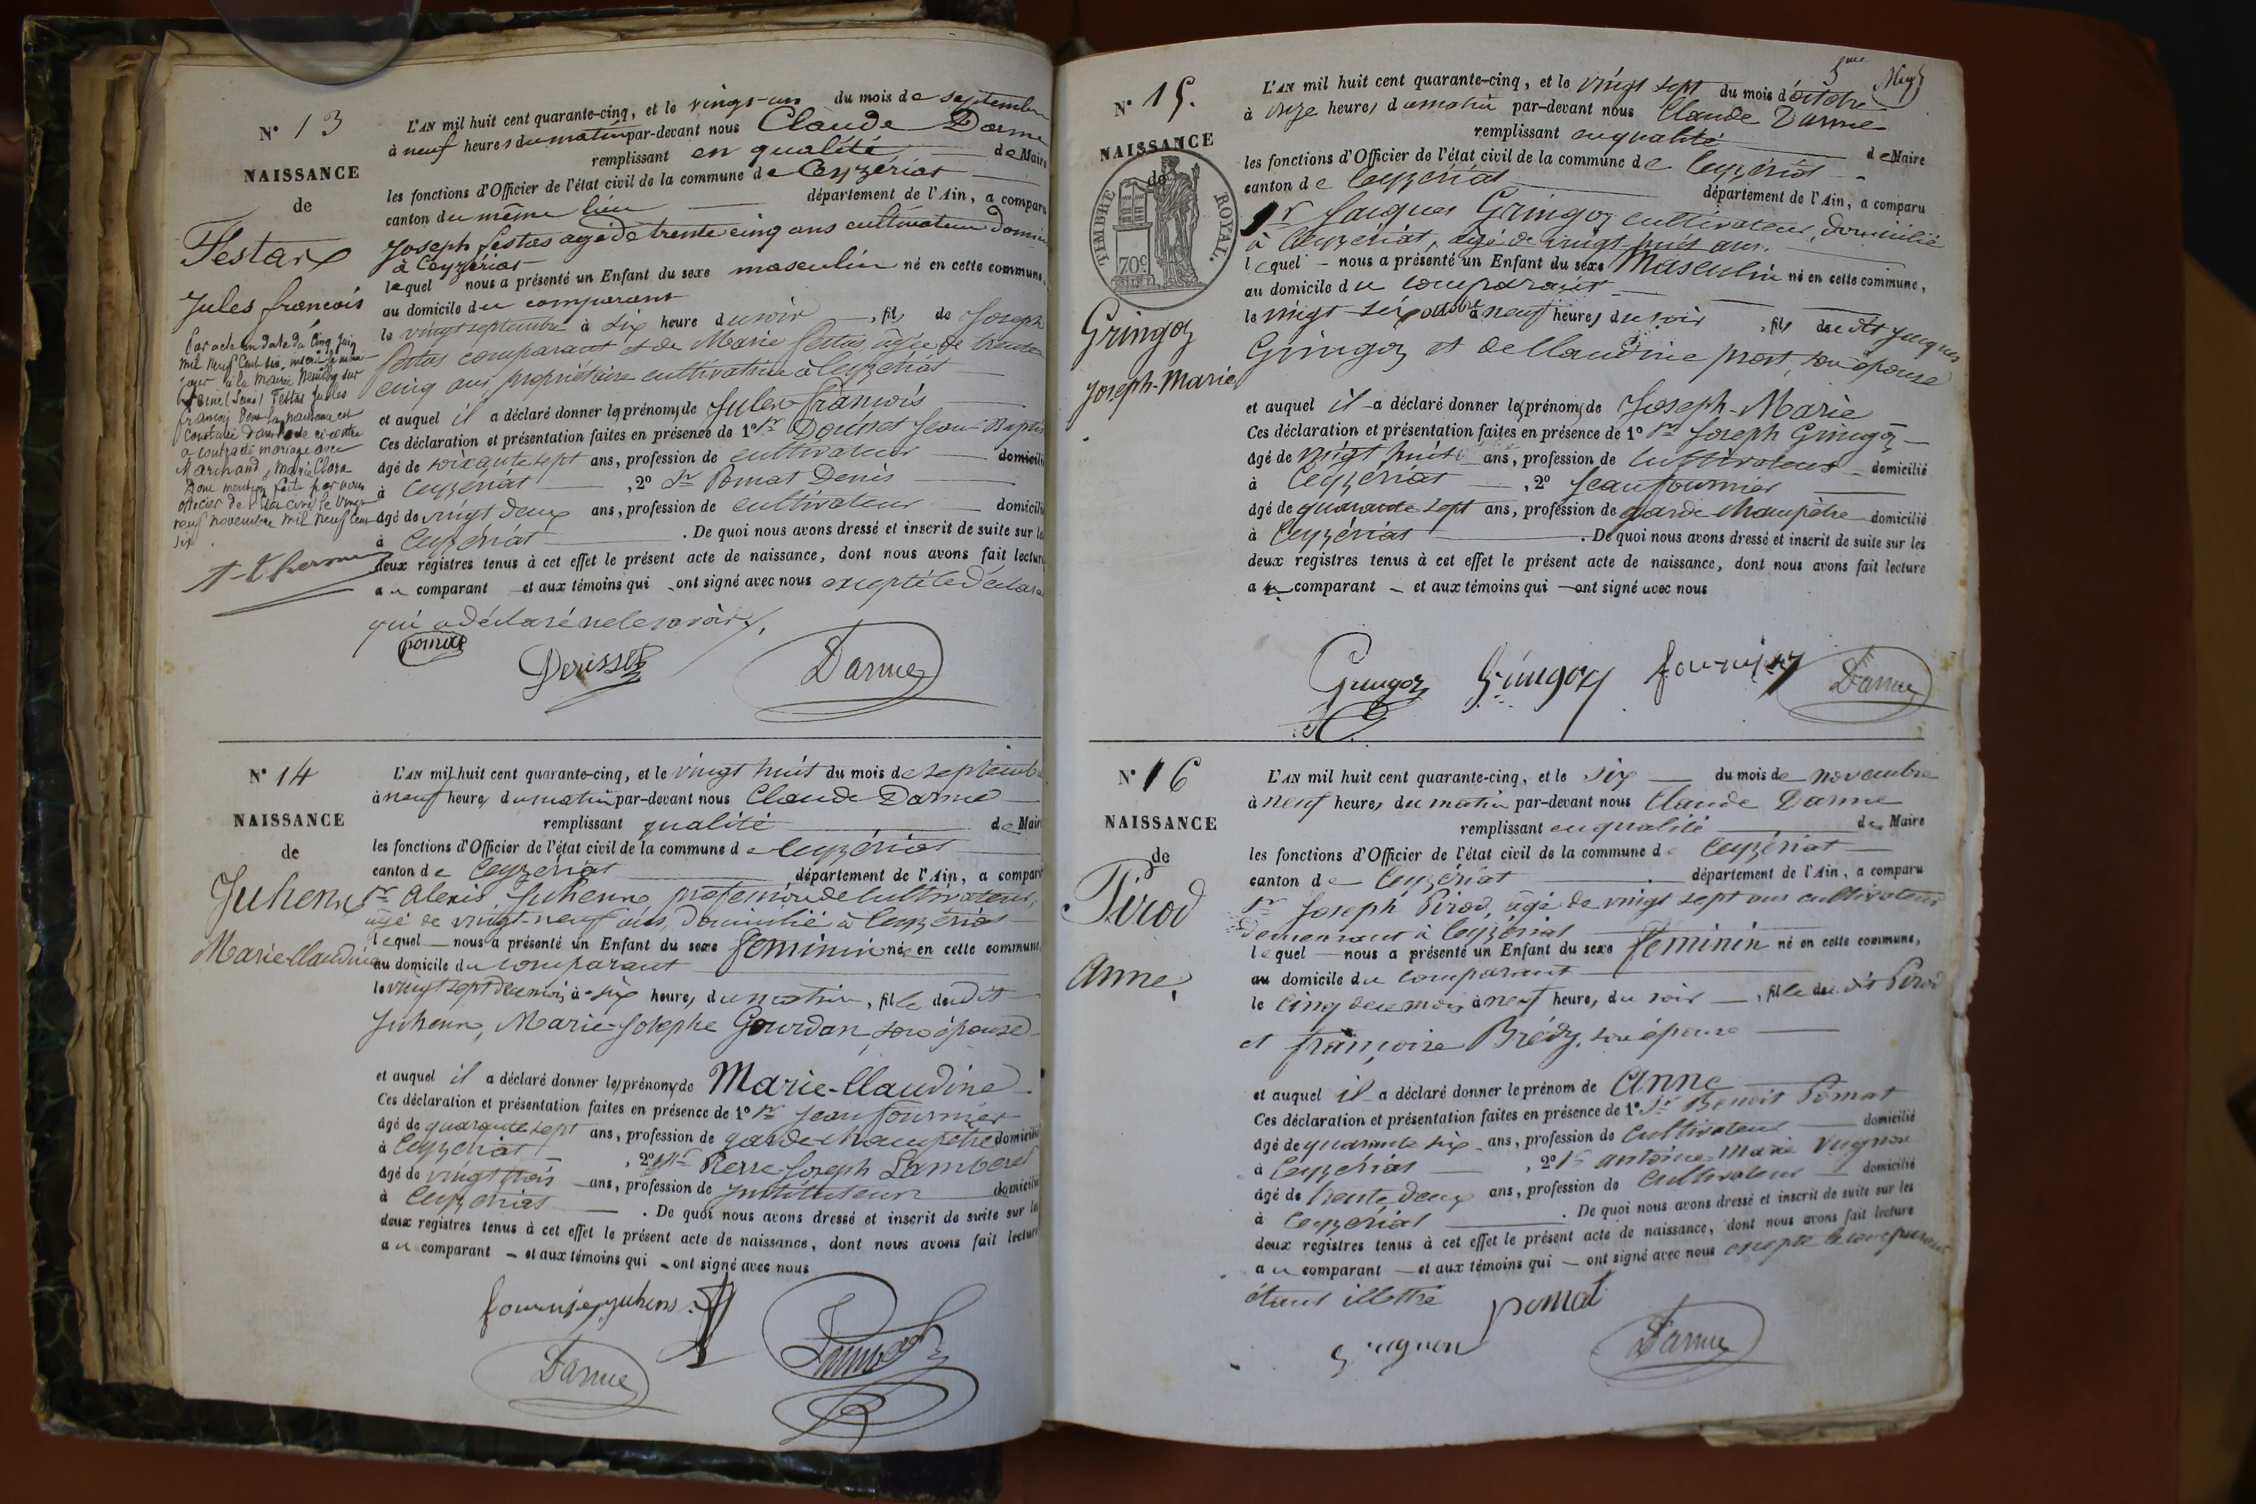 N° 13
NAISSANCE
de
Festas
Jules françois
Par acte en date du cinq juin
mil neuf cent
a contracté mariage avec
Marchand, Marie Clora
Dont mention faite par nous
officier de l'état civil le vingt
neuf novembre mil neuf cent
six
L'AN mil huit cent quarante-cinq, et le vingt-un du mois de septembre
à neuf heures du matin par-devant nous Claude Darme
remplissant en qualité de Maire
les fonctions d'Officier de l'état civil de la commune de Ceyzériat
canton du même lieu département de l'Ain, a comparu
Joseph festas agé de trente cinq ans cultivateur domicilié
à Ceyzériat
lequel nous a présenté un Enfant du sexe masculin né en cette commune,
au domicile du comparant
le vingt septembre à six heure du soir, fils de Joseph
festas comparant et de Marie festas, âgée de trente
cinq ans, propriétaire cultivatrice à Ceyzériat
et auquel il a déclaré donner les prénoms de Jules françois
Ces déclaration et présentation faites en présence de 1° Sr Jean-Baptiste
âgé de soixante sept ans, profession de cultivateur domicilié
à Ceyzériat, 2° Sr Pomat Denis
âgé de vingt deux ans, profession de cultivateur domicilié
à Ceyzériat. De quoi nous avons dressé et inscrit de suite sur les
deux régistres tenus à cet effet le présent acte de naissance, dont nous avons fait lecture
au comparant et aux témoins qui ont signé avec nous excepté le déclarant
qui a déclaré ne le savoir.
pomat
Darme
N° 14
NAISSANCE
de
Juhenne
Marie-Claudine
L'AN mil huit cent quarante-cinq, et le vingt huit du mois de septembre
à neuf heures du matin par-devant nous Claude Darme
remplissant qualité de Maire
les fonctions d'Officier de l'état civil de la commune de Ceyzériat
canton de Ceyzériat département de l'Ain, a comparu
Sr Alexis Juhenne, profession de cultivateur,
âgé de vingt neuf ans, domicilié à Ceyzériat
lequel nous a présenté un Enfant du sexe féminin née en cette commune,
au domicile du comparant
le vingt sept du mois, à six heures du matin, fille du dit
Juhenne, Marie-Josephe Gourdan, son épouse
et auquel il a déclaré donner les prénoms de Marie-Claudine
Ces déclaration et présentation faites en présence de 1° Sr Jean fournier
âgé de quarante sept ans, profession de garde champêtre domicilié
à Ceyzériat, 2° Sr Pierre Joseph Lamberet
âgé de vingt trois ans, profession de Instituteur domicilié
à Ceyzériat. De quoi nous avons dressé et inscrit de suite sur les
deux registres tenus à cet effet le présent acte de naissance, dont nous avons fait lecture
au comparant et aux témoins qui ont signé avec nous
fournier juhens
Darme
5me
TIMBRE ROYAL.
70c
N° 15.
NAISSANCE
de
Gringoz
Joseph-Marie
L'AN mil huit cent quarante-cinq, et le vingt sept du mois d'octobre
à onze heures du matin par-devant nous Claude Darme
remplissant en qualité de Maire
les fonctions d'Officier de l'état civil de la commune de Ceyzériat
canton de Ceyzériat département de l'Ain, a comparu
Sr Jacques Gringoz cultivateur, domicilié
à Ceyzériat, âgé de vingt huit ans.
lequel nous a présenté un Enfant du sexe Masculin né en cette commune,
au domicile du comparant
le vingt six octobre à neuf heures du soir, fils du dit Jacques
Gringoz et de Claudine prost, son épouse
et auquel il a déclaré donner les prénoms de Joseph-Marie
Ces déclaration et présentation faites en présence de 1° Sr Joseph Gringoz
âgé de vingt huit ans, profession de Cultivateur domicilié
à Ceyzériat, 2° Jean fournier
âgé de quarante sept ans, profession de garde champêtre domicilié
à Ceyzériat. De quoi nous avons dressé et inscrit de suite sur les
deux registres tenus à cet effet le présent acte de naissance, dont nous avons fait lecture
au comparant et aux témoins qui ont signé avec nous
Gringoz Gringoz fournier Darme
N° 16
NAISSANCE
de
Pirod
Anne
L'AN mil huit cent quarante-cinq, et le six du mois de novembre
à neuf heures du matin par-devant nous Claude Darme
remplissant en qualité de Maire
les fonctions d'Officier de l'état civil de la commune de Ceyzériat
canton de Ceyzériat département de l'Ain, a comparu
Sr Joseph Pirod, âgé de vingt sept ans cultivateur
demeurant à Ceyzériat
lequel nous a présenté un Enfant du sexe féminin né en cette commune,
au domicile du comparant
le cinq du mois à neuf heures du soir, fille du dit Pirod
et françoise Brédy, son épouse
et auquel il a déclaré donner le prénom de Anne
Ces déclaration et présentation faites en présence de 1° Sr Benoit Pomat
âgé de quarante six ans, profession de Cultivateur domicilié
à Ceyzériat, 2° Sr antoine Marie Vugnon
âgé de trente deux ans, profession de Cultivateur domicilié
à Ceyzériat. De quoi nous avons dressé et inscrit de suite sur les
deux registres tenus à cet effet le présent acte de naissance, dont nous avons fait lecture
au comparant et aux témoins qui ont signé avec nous excepté le comparant
étant illettré
pomat
Darme